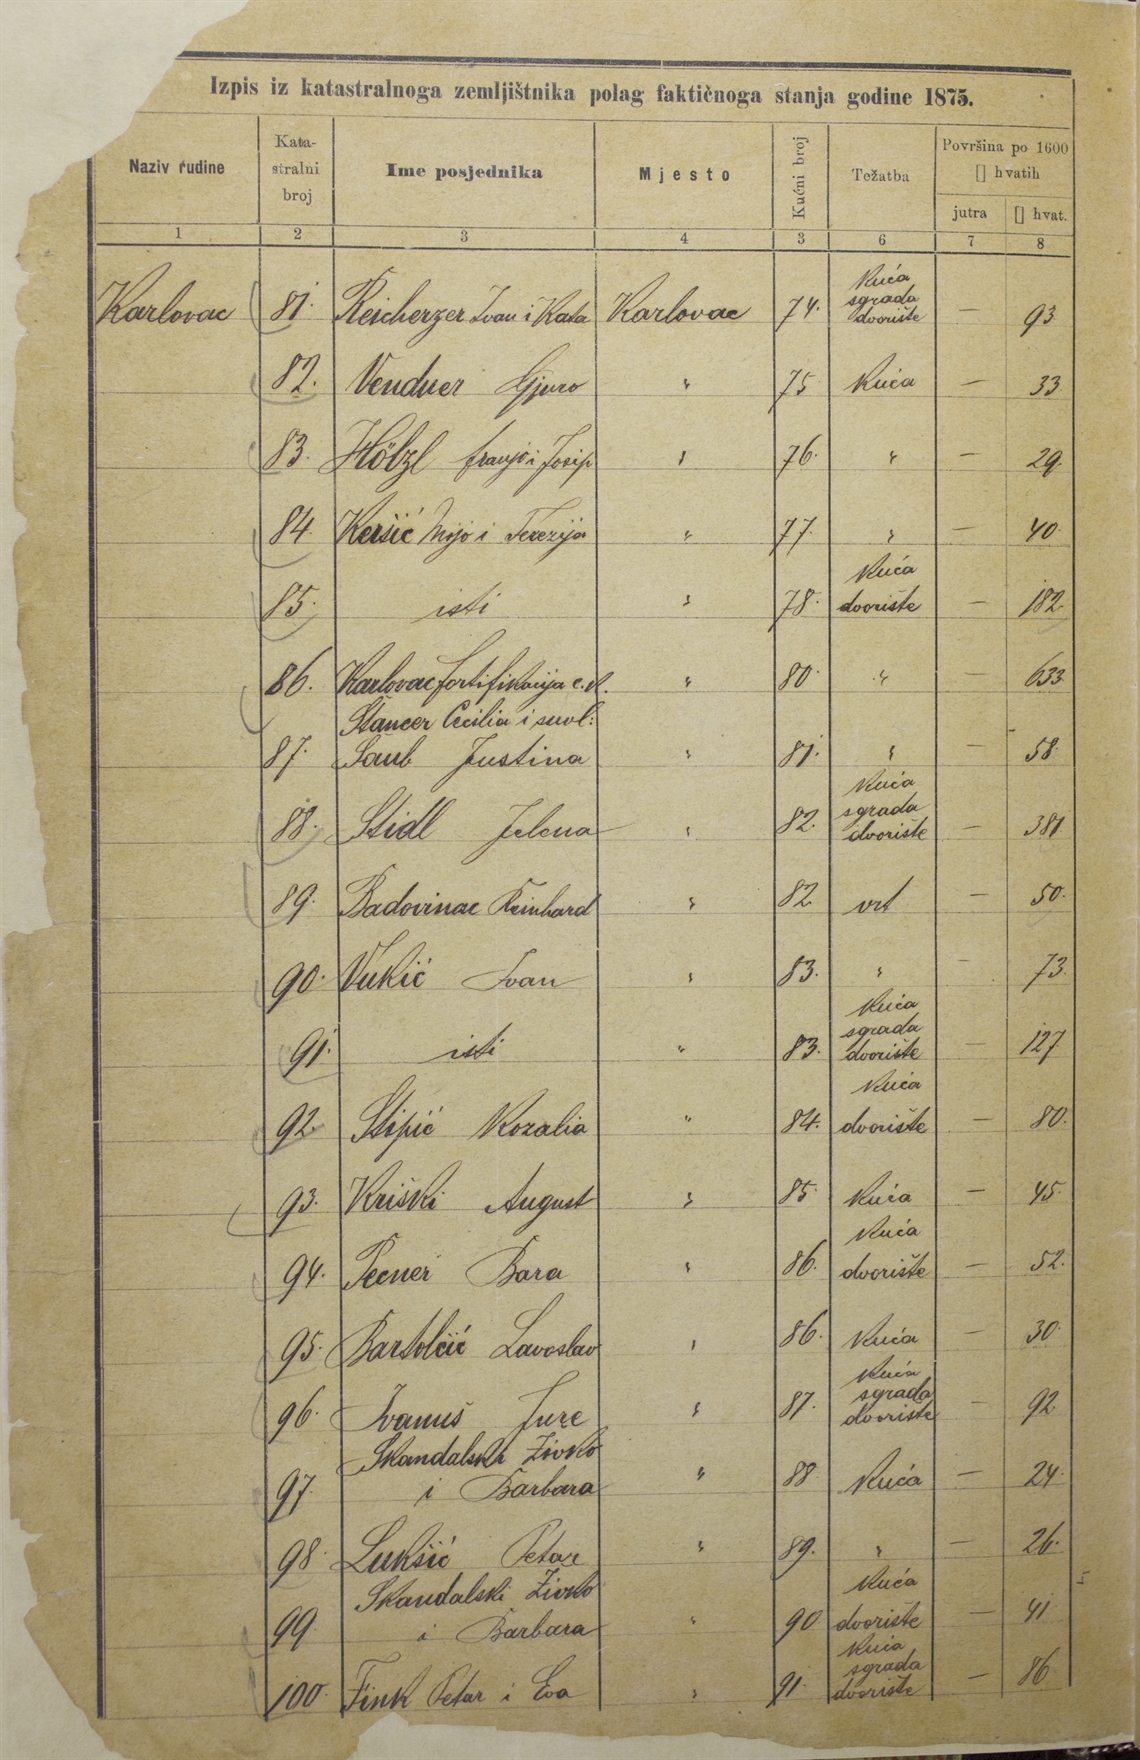 Izpis iz katastralnoga zemljištnika polag faktičnoga stanja godine 1875.
Naziv rudine Kata-stralni broj Ime posjednika Mjesto Kućni broj Težatba Površina po 1600 [] hvatih
jutra [] hvat.
1 2 3 4 3 6 7 8
Karlovac 81. Reicherzer Ivan i Kata Karlovac 74. Kuća sgrada dvorište — 93
82. Venduer Gjuro " 75 Kuća — 33
83. Hölzl Franjo i Josip " 76. " — 29.
84. Keršić Mijo i Terezija " 77. " — 40.
85. isti " 78. Kuća dvorište — 182.
86. Karlovac fortifikacija c. k. " 80. " 633
Štancer Cecilia i suvl:
87. Šaub Justina " 81. " — 58.
88. Stidl Jelena " 82. Kuća sgrada dvorište — 381
89. Badovinac Reinhard " 82. vrt — 50.
90. Vukić Ivan " 83. " — 73.
91. isti " 83. Kuća sgrada dvorište — 127
92. Stipić Rozalia " 84. Kuća dvorište — 80.
93. Kriški August " 85. Kuća — 45.
94. Pecner Bara " 86. Kuća dvorište — 52.
95. Bartolčić Lavoslav " 86. Kuća — 30.
96. Ivanuš Jure " 87. Kuća sgrada dvorište — 92.
Skandalski Živko
97. i Barbara " 88 Kuća — 24.
98. Lukšić Petar " 89. " — 26.
Skandalski Živko
99 i Barbara " 90 Kuća dvorište — 41
100. Fink Petar i Eva " 91. Kuća sgrada dvorište — 86